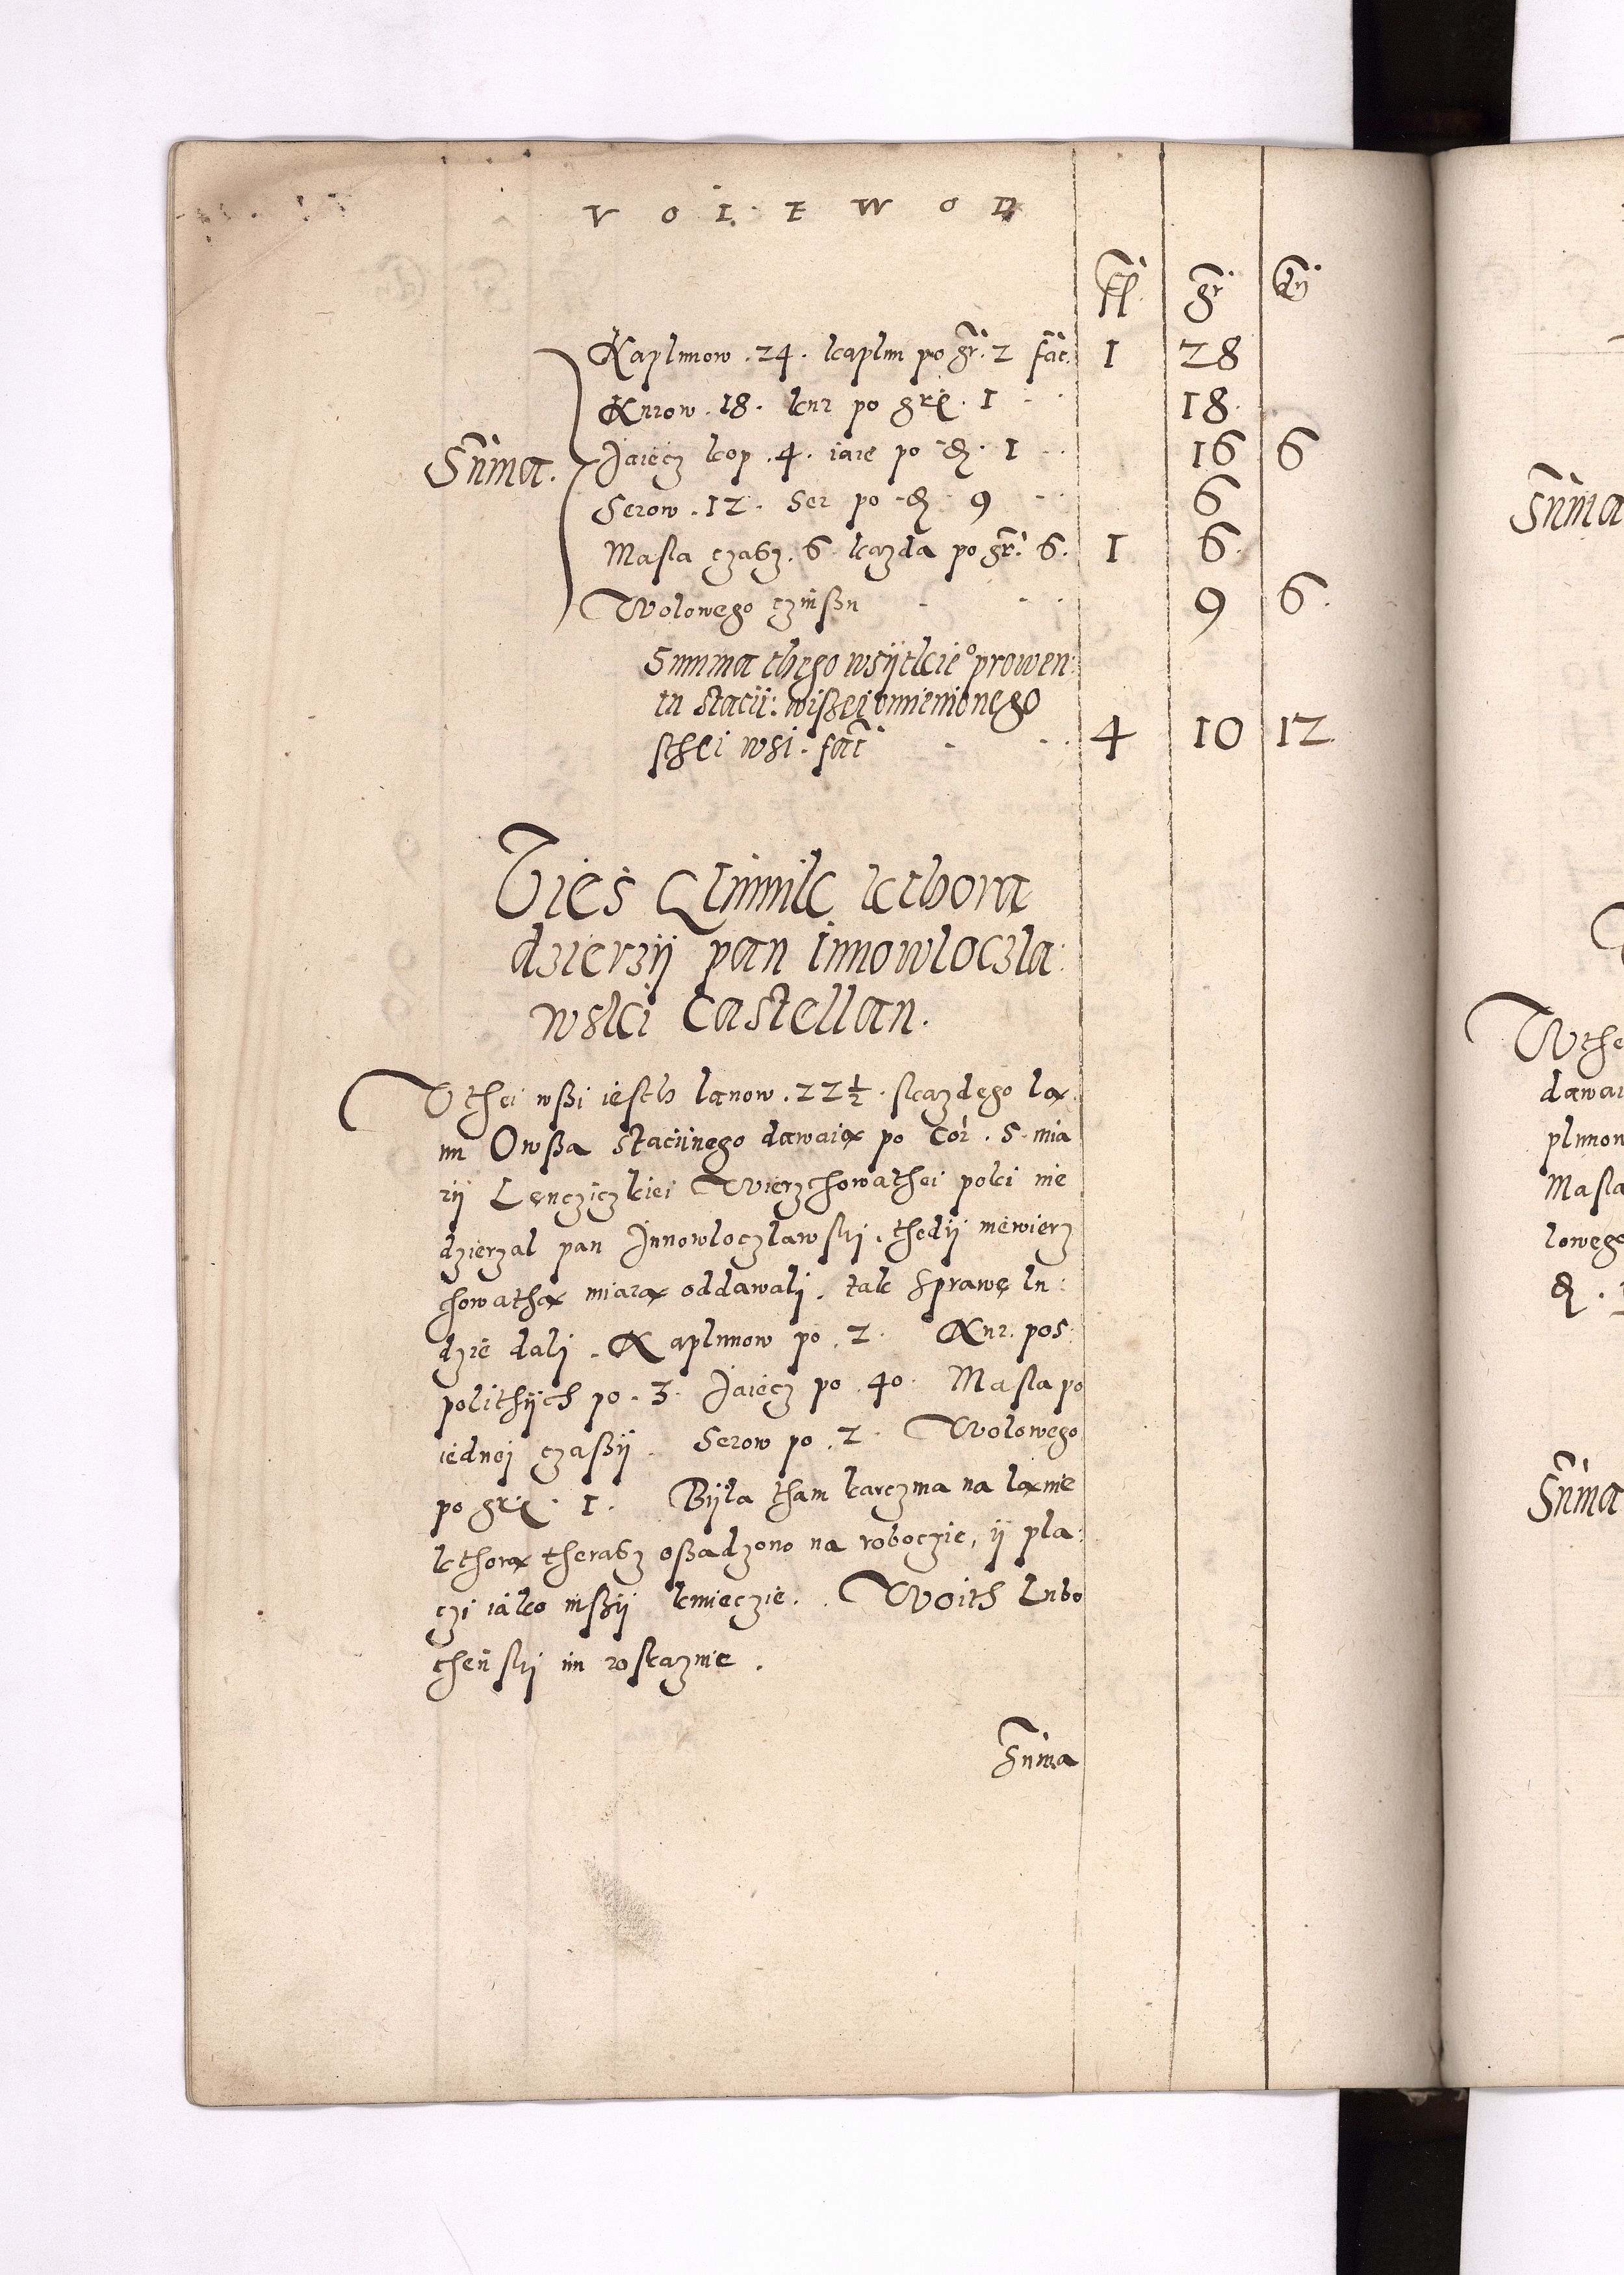 V O I E W O D
fl. gr. dn
Kaplunow . 24 . kaplun po gr. 2 fac. 1 28
Kurow . 18 . kur po grę . 1 18
Jaięcz kop . 4 . iaie po d. 1 16 6
Summa. Serow . 12 . Ser po d. 9 6
Masla czasz . 6 . kazda po gr. 6 . 1 6
Wolowego czinßu 9 6
Summa thego wsÿtkie° prowen:
tu stacii: wißei omienionego
sthei wsi . fac 4 10 12
dzierzÿ pan Innowloczla:
wski Castellan.
W thei wßi iesth lanow . 22 ½ . skazdego la
nu Owßa stacÿnego dawaią po Cor . 5 . mia
rÿ Lęnczÿczkiei Wierzchowathei poki nie
dzierzal pan Jnnowloczlawski . thedÿ niewierz
chowathą miarą oddawali . tak sprawę lu:
dzie dali . Kaplunow po . 2 . Kur. pos:
polithÿch po . 3 . Jaięcz po . 40 . Masla po
iednei czaßÿ . Serow po . 2 . Wolowego
po grę . 1 . Bÿla tham karczma na lanie
kthorą therasz oßadzono na roboczie, ÿ pla:
czi iako inßÿ kmieczie . Woith Lubo
chenski im roskazuie .
Suma
Suma
Wthe
dawai
plunow
Masla
lowego
d.
Suma